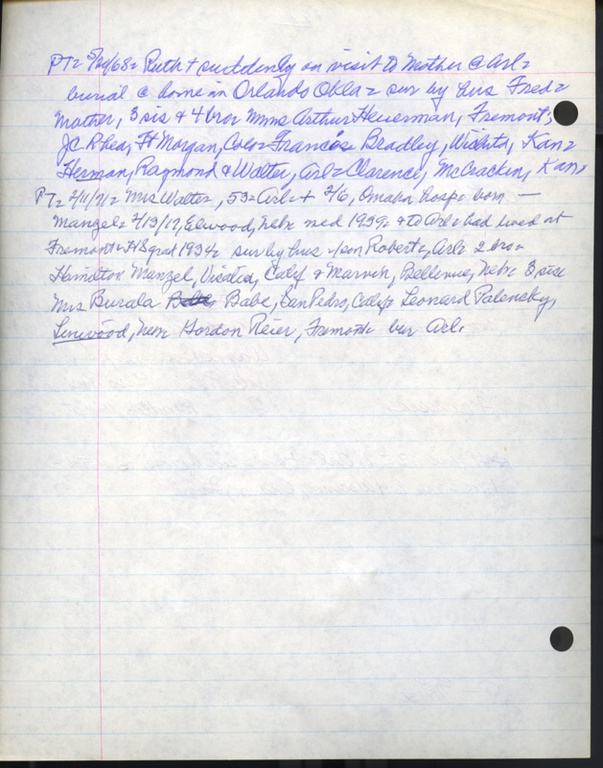 PT= 5/20/68= Ruth + suddenly on visit to Mother @ Arl=
burial @ home in Orlando Okla= sur by hus Fred=
Mother, 3 sis & 4 bro= Mmes Arthur Heuerman, Fremont;
JC Rhea, Ft Morgan, Colo= Francise Bradley, Wichita, Kan=
Herman, Raymond & Walter, Arl= Clarence, McCracken, Kan=
PT= 2/11/71= Mrs Walter, 53= Arl= + 2/6, Omaha hosp= born —
Manzel= 2/13/17, Elwood, Neb= med 1939= & to Arl= had lived at
Fremont= HS grad 1934= sur by hus, son Robert=, Arl= 2 bro=
Hamilton Manzel, Visalia, Calif & Marvin, Bellevue, Neb= 3 sis=
Mrs Burala Babe, San Pedro, Calif= Leonard Palensky,
Linwood, Neb= Gordon Reier, Fremont= bur Arl.